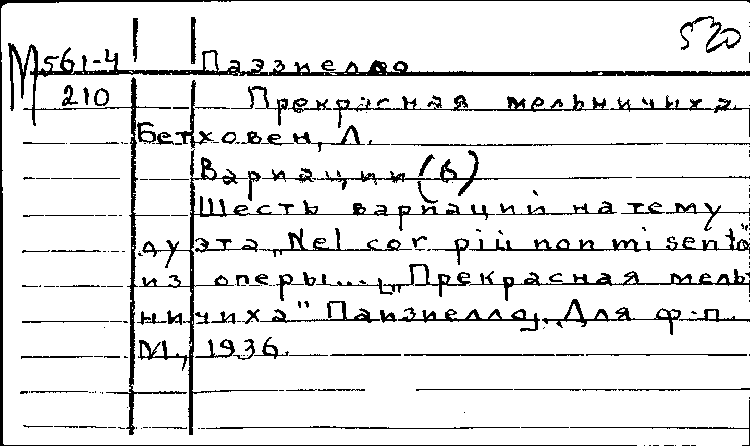 520
М 561-4 Паэзиелло
210 Прекрасная мельничиха.
Бетховен, Л.
Вариации (6)
Шесть вариаций на тему
дуэта „Nel cor più non mi sento"
из оперы... [„Прекрасная мель
ничиха" Паизиелло]... Для ф-п.
М., 1936.